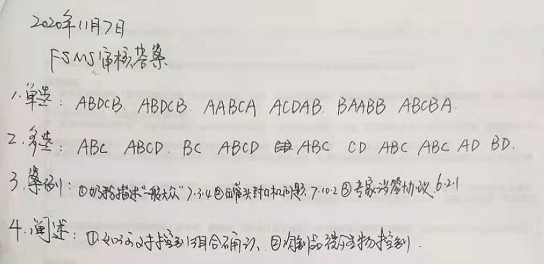 2020年11月7日
FSMS审核答案
1.单选: ABDCB. ABDCB. AABCA ACDAB. BAABB ABCBA.
2.多选: ABC ABCD. BC ABCD ABC CD ABC ABC AD BD.
3.案例: ①奶粉描述“一般大众”7.3.4 ②罐头封口机问题 7.10.2 ③专家没签协议 6.2.1
4.阐述: ①如何对控制组合确认. ②微生物控制.